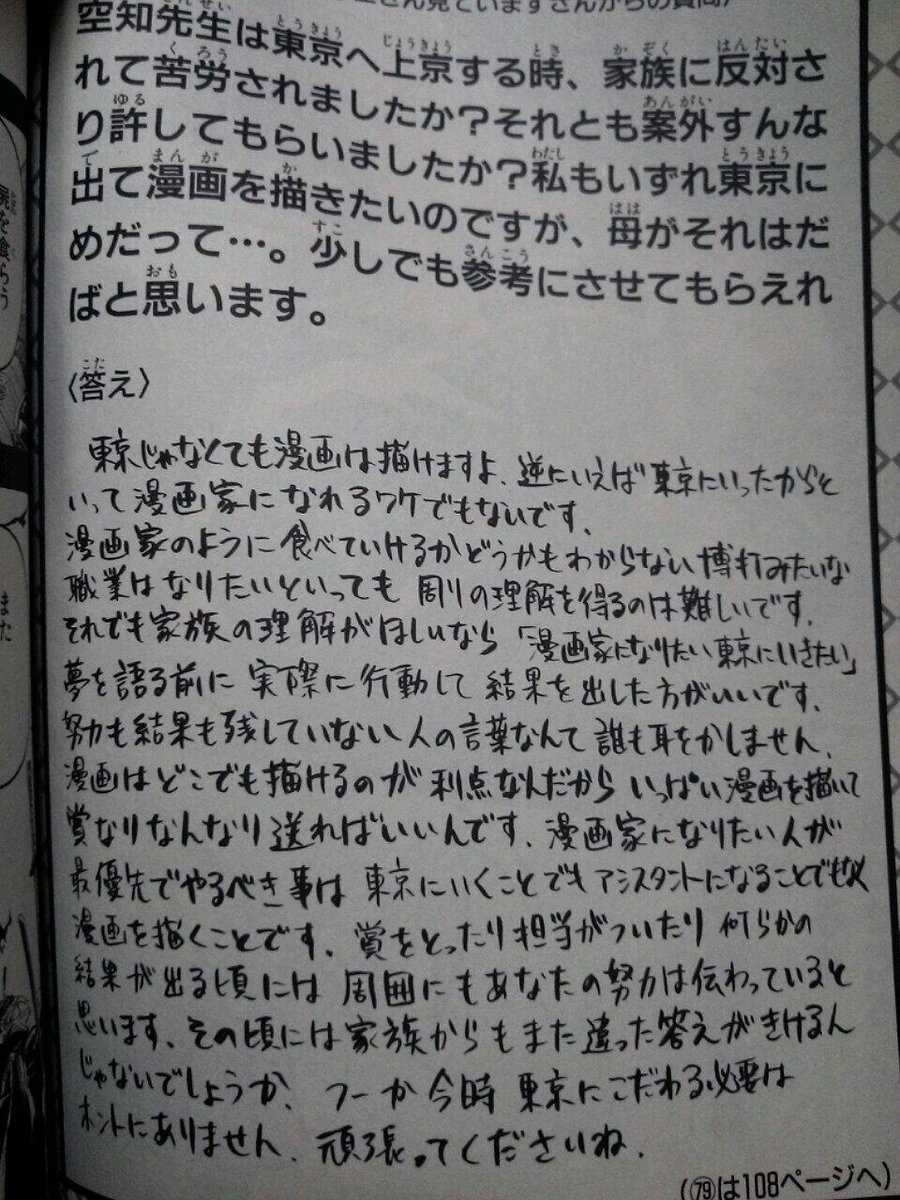 さん見ていますさんからの質問
空知先生は東京へ上京する時、家族に反対さ
れて苦労されましたか?それとも案外すんな
り許してもらいましたか?私もいずれ東京に
出て漫画を描きたいのですが、母がそれはだ
めだって…。少しでも参考にさせてもらえれ
ばと思います。
〈答え〉
東京じゃなくても漫画は描けますよ、逆にいえば東京にいったからと
いって漫画家になれるワケでもないです、
漫画家のように食べていけるかどうかもわからない博打みたいな
職業はなりたいといっても周りの理解を得るのは難しいです、
それでも家族の理解がほしいなら「漫画家になりたい東京にいきたい」
夢を語る前に実際に行動して結果を出した方がいいです、
努力も結果も残していない人の言葉なんて誰も耳をかしません、
漫画はどこでも描けるのが利点なんだからいっぱい漫画を描いて
賞なりなんなり送ればいいんです、漫画家になりたい人が
最優先でやるべき事は東京にいくことでもアシスタントになることでもなく
漫画を描くことです、賞をとったり担当がついたり何らかの
結果が出る頃には周囲にもあなたの努力は伝わっていると
思います、その頃には家族からもまた違った答えがきけるん
じゃないでしょうか、つーか今時東京にこだわる必要は
ホントにありません、頑張ってくださいね、
(79は108ページへ)
屍を喰らう
また